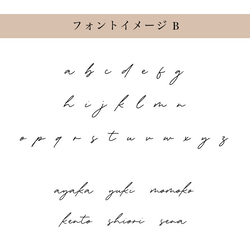 フォントイメージ B
a b c d e f g
h i j k l m n
o p q r s t u v w x y z
ayaka yuki momoko
kento shiori sena